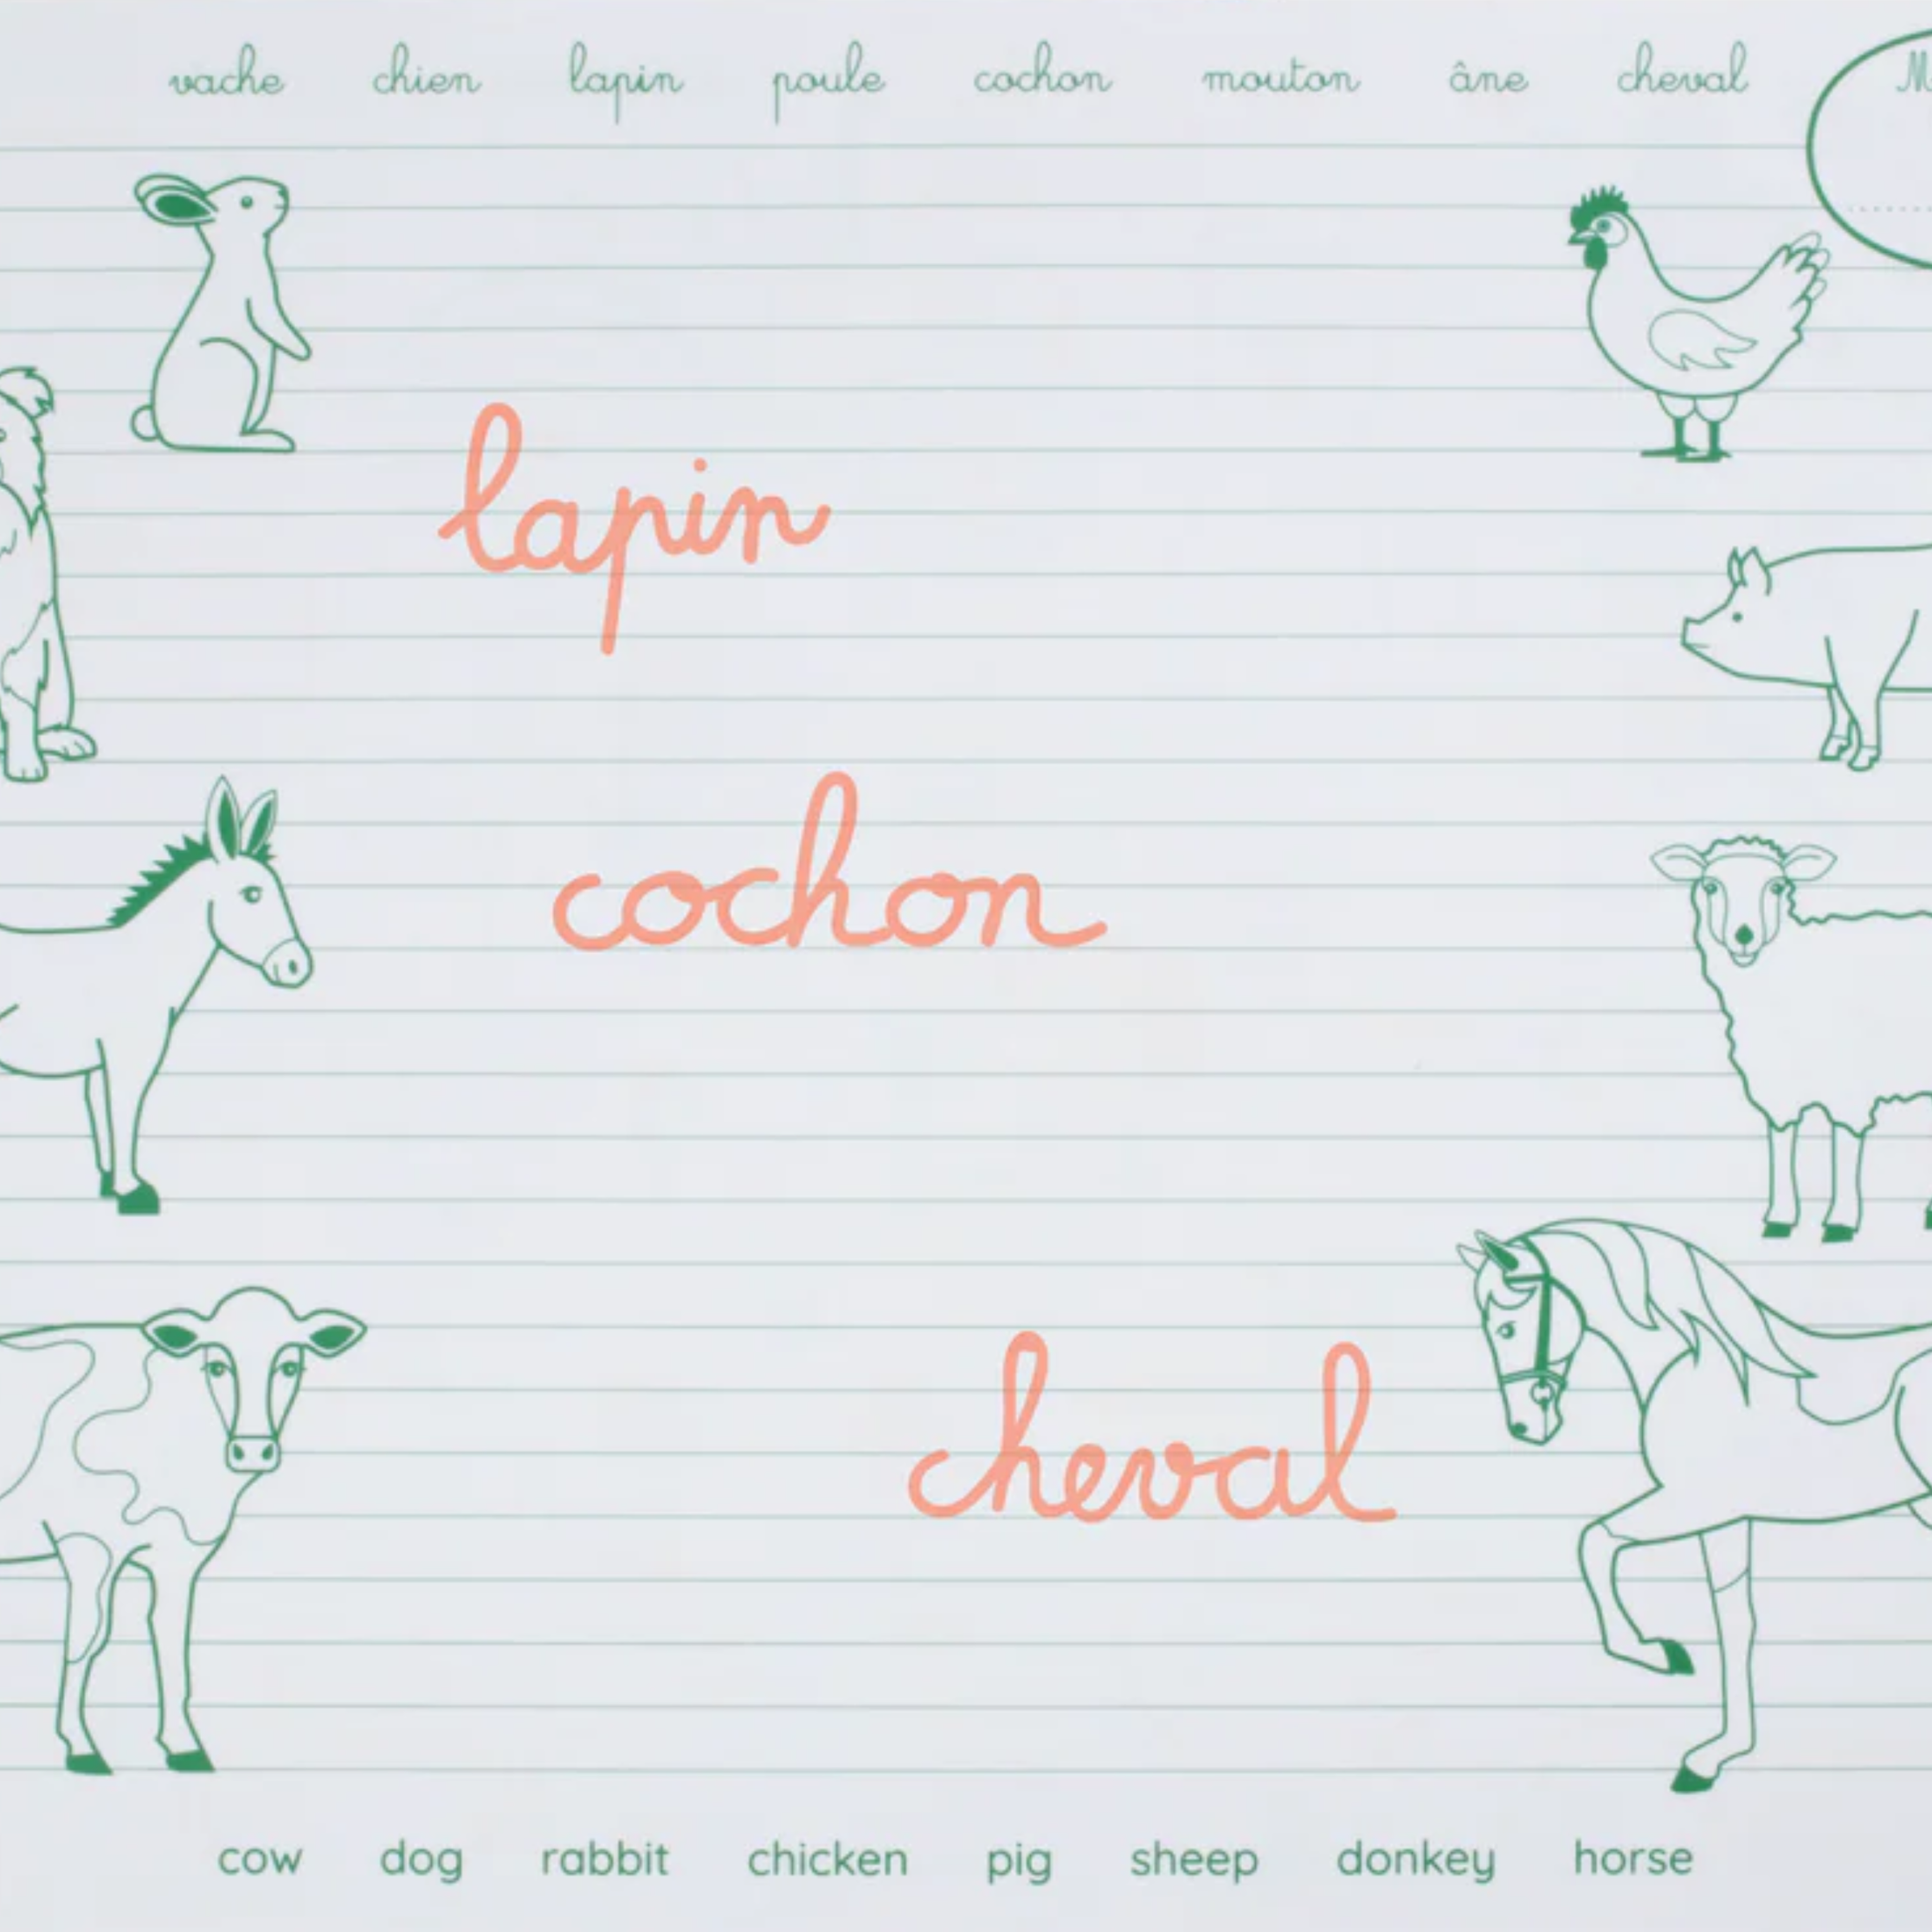 vache chien lapin poule cochon mouton âne cheval
lapin
cochon
cheval
cow dog rabbit chicken pig sheep donkey horse